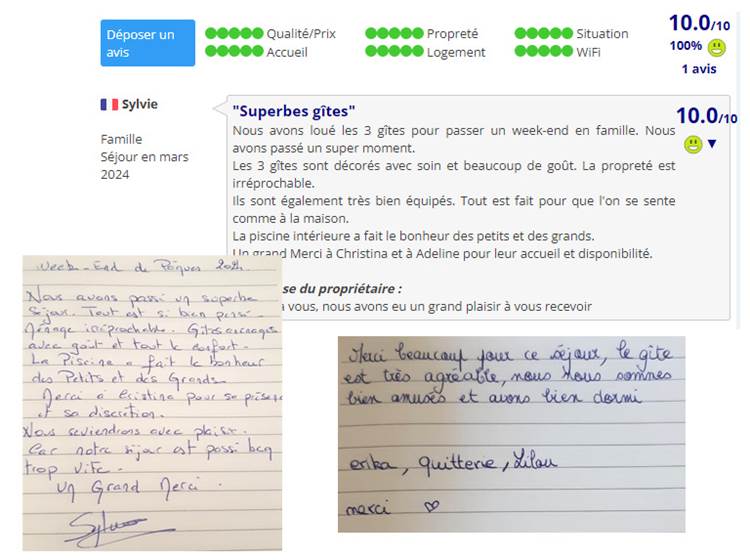 Déposer un
avis
Qualité/Prix
Accueil
Propreté
Logement
Situation
WiFi
10.0/10
100%
1 avis
Sylvie
Famille
Séjour en mars
2024
"Superbes gîtes"
10.0/10
Nous avons loué les 3 gîtes pour passer un week-end en famille. Nous
avons passé un super moment.
Les 3 gîtes sont décorés avec soin et beaucoup de goût. La propreté est
irréprochable.
Ils sont également très bien équipés. Tout est fait pour que l'on se sente
comme à la maison.
La piscine intérieure a fait le bonheur des petits et des grands.
Un grand Merci à Christina et à Adeline pour leur accueil et disponibilité.
se du propriétaire :
à vous, nous avons eu un grand plaisir à vous recevoir
Week-End de Pâques 2024
Nous avons passé un superbe
séjour. Tout est si bien pensé.
Ménage irréprochable. Gîtes
avec goût et tout le confort.
La Piscine a fait le bonheur
des Petits et des Grands.
Merci à Cristina pour sa
et sa discrétion.
Nous reviendrons avec plaisir.
Car notre séjour est passé bcq
trop vite.
Un Grand Merci.
Sylvie
Merci beaucoup pour ce séjour, le gîte
est très agréable, nous nous sommes
bien amusés et avons bien dormi
erika, Quitterie, Lilou
merci ♡